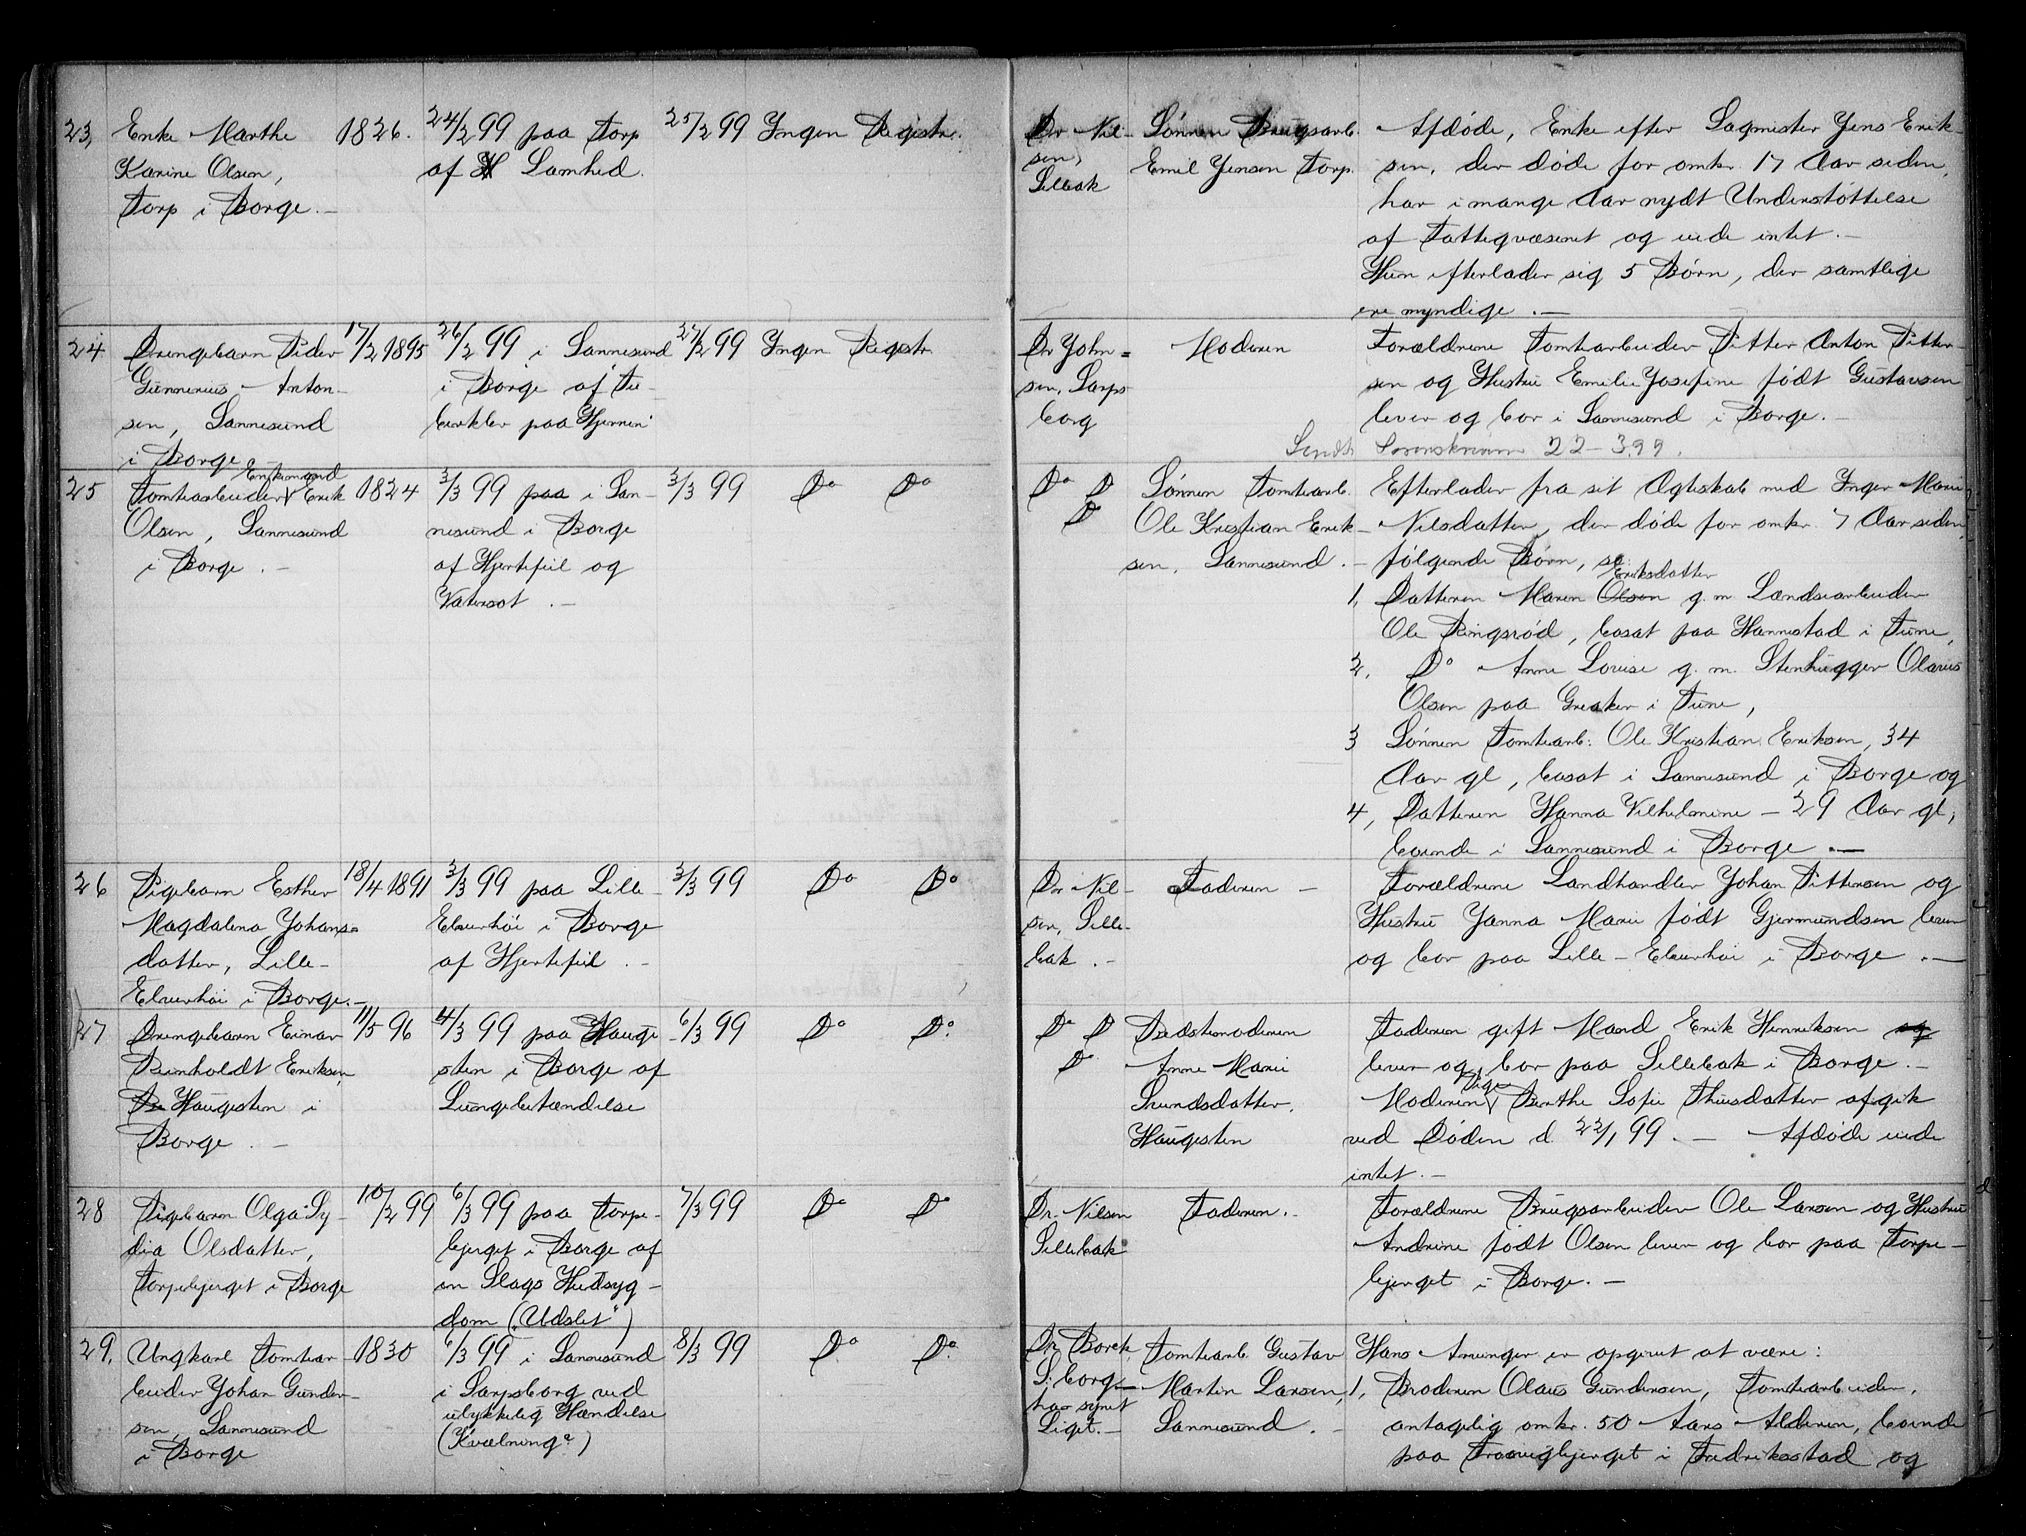 23, Enke Marthe 1826. 24/2 99 paa Torp 25/2 99 Ingen Registr. Dr Nil- Sønnen Brugsarb. Afdøde, Enke efter Sagmester Jens Erik
Karine Olsen, af Lamhed. sen, Emil Jensen Torp. sen, der døde for omkr. 17 Aar siden,
Torp i Borge.- Sellebak har i mange Aar nydt Understøttelse
af Fattigvæsenet og eiede intet.-
Hun efterlader sig 5 Børn, der samtlige
ere myndige.-
24 Drengebarn Peder 17/2 1895 26/2 99 i Sannesund 27/2 99 Ingen Registr. Dr John= Moderen Forældrene Tomtearbeider Petter Anton Petter-
Gunnerius Anton- i Borge af Tu- sen, Sarps sen og Hustru Emilie Josefine født Gustavsen
sen, Sannesund berkler paa Hjernen borg lever og bor i Sannesund i Borge.-
i Borge - Sendt Sorenskriveren 22-3 99.
25 Tomtearbeider Enkemand Erik 1824 3/3 99 paa i San- 3/3 99 Do Do Do D Sønnen Tomtearb. Efterlader fra sit Ægteskab med Inger Marie
Olsen, Sannesund nesund i Borge D Ole Kristian Erik- Nilsdatter, der døde for omkr. 7 Aar siden,
i Borge.- af Hjertefeil og sen, Sannesund.- følgende Børn, se:
Vatersot.- 1, Datteren Maren Olsen Eriksdatter g. m. Landsearbeider
Ole Ringsrød, bosat paa Hannestad i Tune,
2, Do Anne Lovise g. m. Stenhugger Olaus
Olsen paa Greaker i Tune,
3 Sønnen Tomtearb: Ole Kristian Eriksen, 34
Aar gl, bosat i Sannesund i Borge og
4, Datteren Hanna Vilhelmine - 29 Aar gl,
boende i Sannesund i Borge.-
26 Pigebarn Esther 18/4 1891 3/3 99 paa Lille- 3/3 99 Do Do Dr Nil- Faderen - Forældrene Landhandler Johan Pettersen og
Magdalena Johans= Elverhøi i Borge sen, Selle- Hustru Janna Marie født Gjermundsen lever
datter, Lille- af Hjertefeil.- bak.- og bor paa Lille-Elverhøi i Borge.-
Elverhøi i Borge.-
27 Drengebarn Einar 11/5 96 4/3 99 paa Hauge- 6/3 99 Do Do Do D Bedstemoderen Faderen gift Mand Erik Henriksen og
Reinholdt Eriksen, sten i Borge af Do Anne Marie lever og bor paa Sellebak i Borge.-
Bo Haugesten i Lungebetændelse Svendsdatter, Moderen Pige Berthe Sofie Thiisdatter afgik
Borge.- Haugesten ved Døden d. 22/1 99.- Afdøde eiede
intet.-
28 Pigebarn Olga Ly- 10/2 99 6/3 99 paa Torpe- 7/3 99 Do Do Dr. Nilsen Faderen.- Forældrene Brugsarbeider Ole Larsen og Hustru
dia Olsdatter, bjerget i Borge af Sellebak Andrine født Olsen lever og bor paa Torpe-
Torpebjerget i Borge en Slags Hudsyg- bjerget i Borge.-
dom ("Udslet")
29, Ungkarl Tomtear- 1830 6/3 99 i Sannesund 8/3 99 Do Do Dr Borch, Tomtearb. Gustav Hans Arvinger er opgivet at være:
beider Johan Gunder- i Sarpsborg ved S.borg- Martin Larsen, 1, Broderen Olaus Gundersen, Tomtearbeider,
sen, Sannesund ulykkelig Hændelse har synet Sannesund.- antagelig omkr. 50 Aars Alderen, boende
i Borge (Kvælning?) Liget.- paa Traavigbjerget i Fredriksstad og